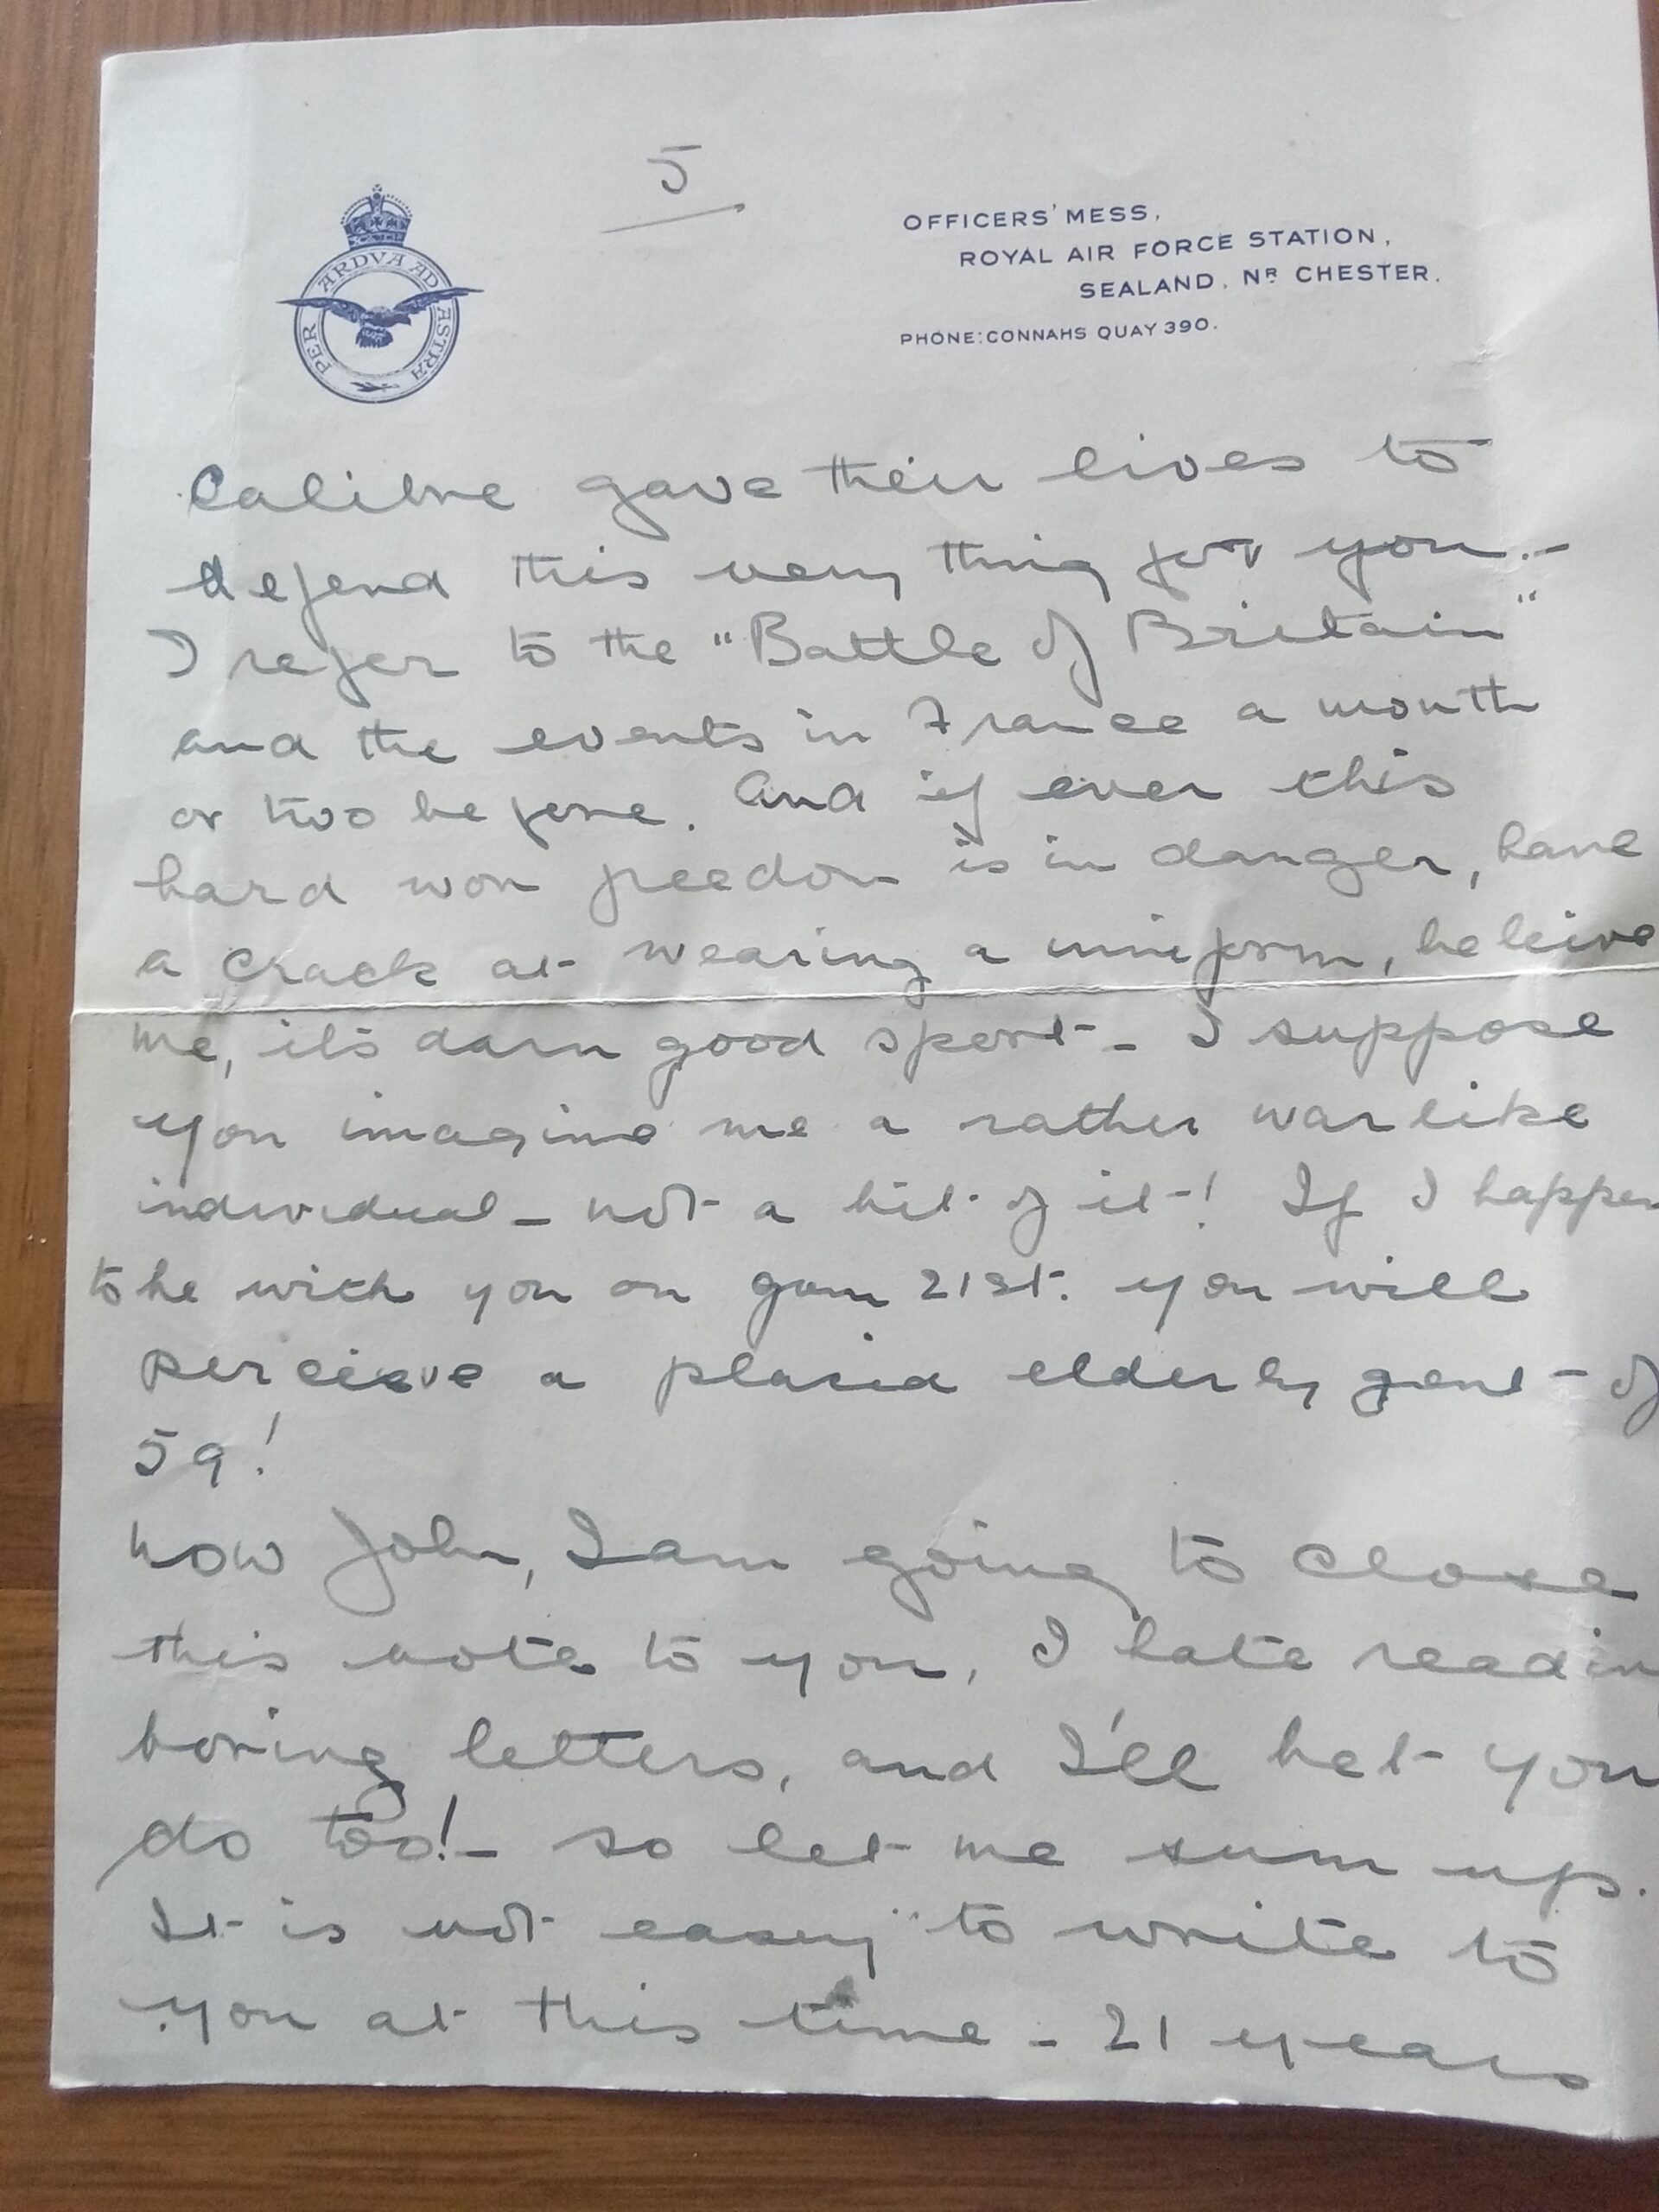 5
PER ARDVA AD ASTRA
OFFICERS' MESS,
ROYAL AIR FORCE STATION,
SEALAND, NR CHESTER.
PHONE: CONNAHS QUAY 390.
Calibre gave their lives to
defend this very thing for you.-
I refer to the "Battle of Britain"
and the events in France a month
or two before. And if ever this
hard won freedom is in danger, have
a crack at wearing a uniform, beleive
me, it's darn good sport - I suppose
you imagine me a rather warlike
individual - not a bit of it! If I happen
to be with you on your 21st. you will
perceive a placid elderly gent - of
59!
Now John, I am going to close
this note to you, I hate readin
boring letters, and I'll bet you
do too! - so let me sum up.
It is not easy to write to
you at this time - 21 years